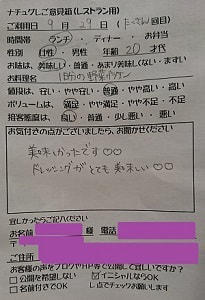 ナチュグレご意見箱(レストラン用)
ご利用日 9月29日(たくさん回目)
時間帯 ランチ・ディナー・お弁当
性別 女性・男性 年齢 20才代
お味は、美味しい・普通・あまり美味しくない・まずい
お料理名 1日分の野菜チキン
値段は、安い・やや安い・普通・やや高い・高い
ボリュームは、満足・やや満足・やや不足・不足
接客態度は、良い・普通・少し悪い・悪い
お気付きの点がございましたら、お聞かせください
美味しかったです♡♡
ドレッシングがとても美味しい♡♡
宜しかったらご記入ください
お名前 様 電話
ご住所
お客様の声をブログやHP等で公開して宜しいですか?
□公開を希望しない ☑イニシャルならOK
□名前付きでOK レ点でチェックお願いします